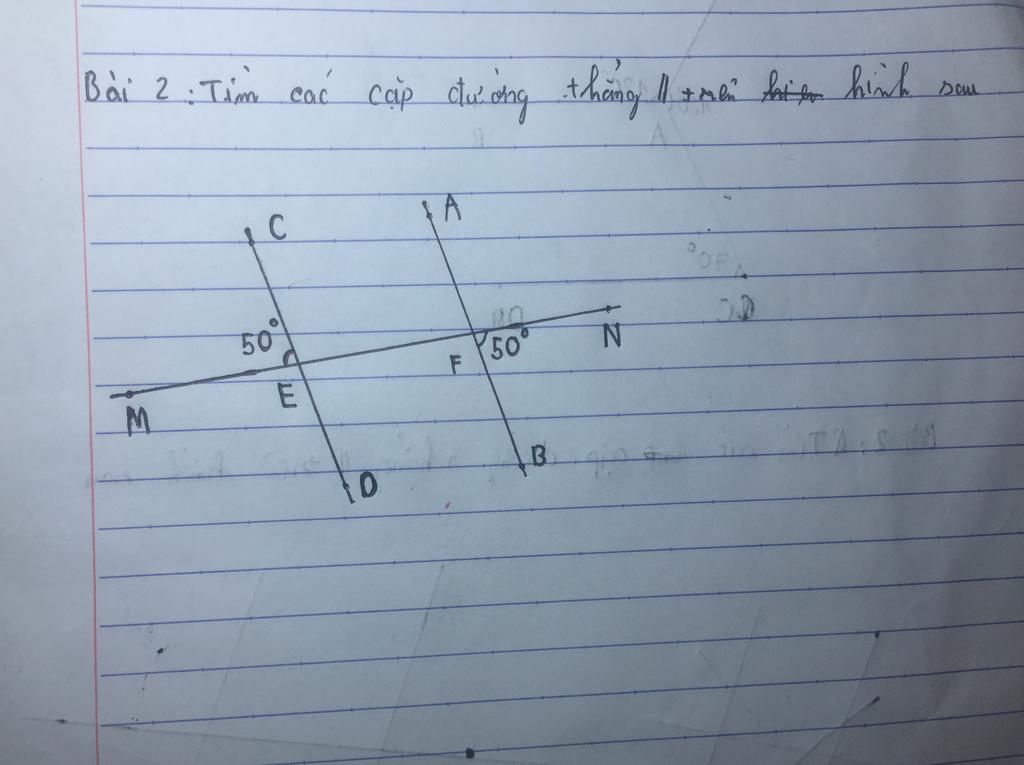 Bài 2 : Tìm các cặp đường thẳng // trên hình sau
A
C
50°
N
50°
F
E
M
B
D